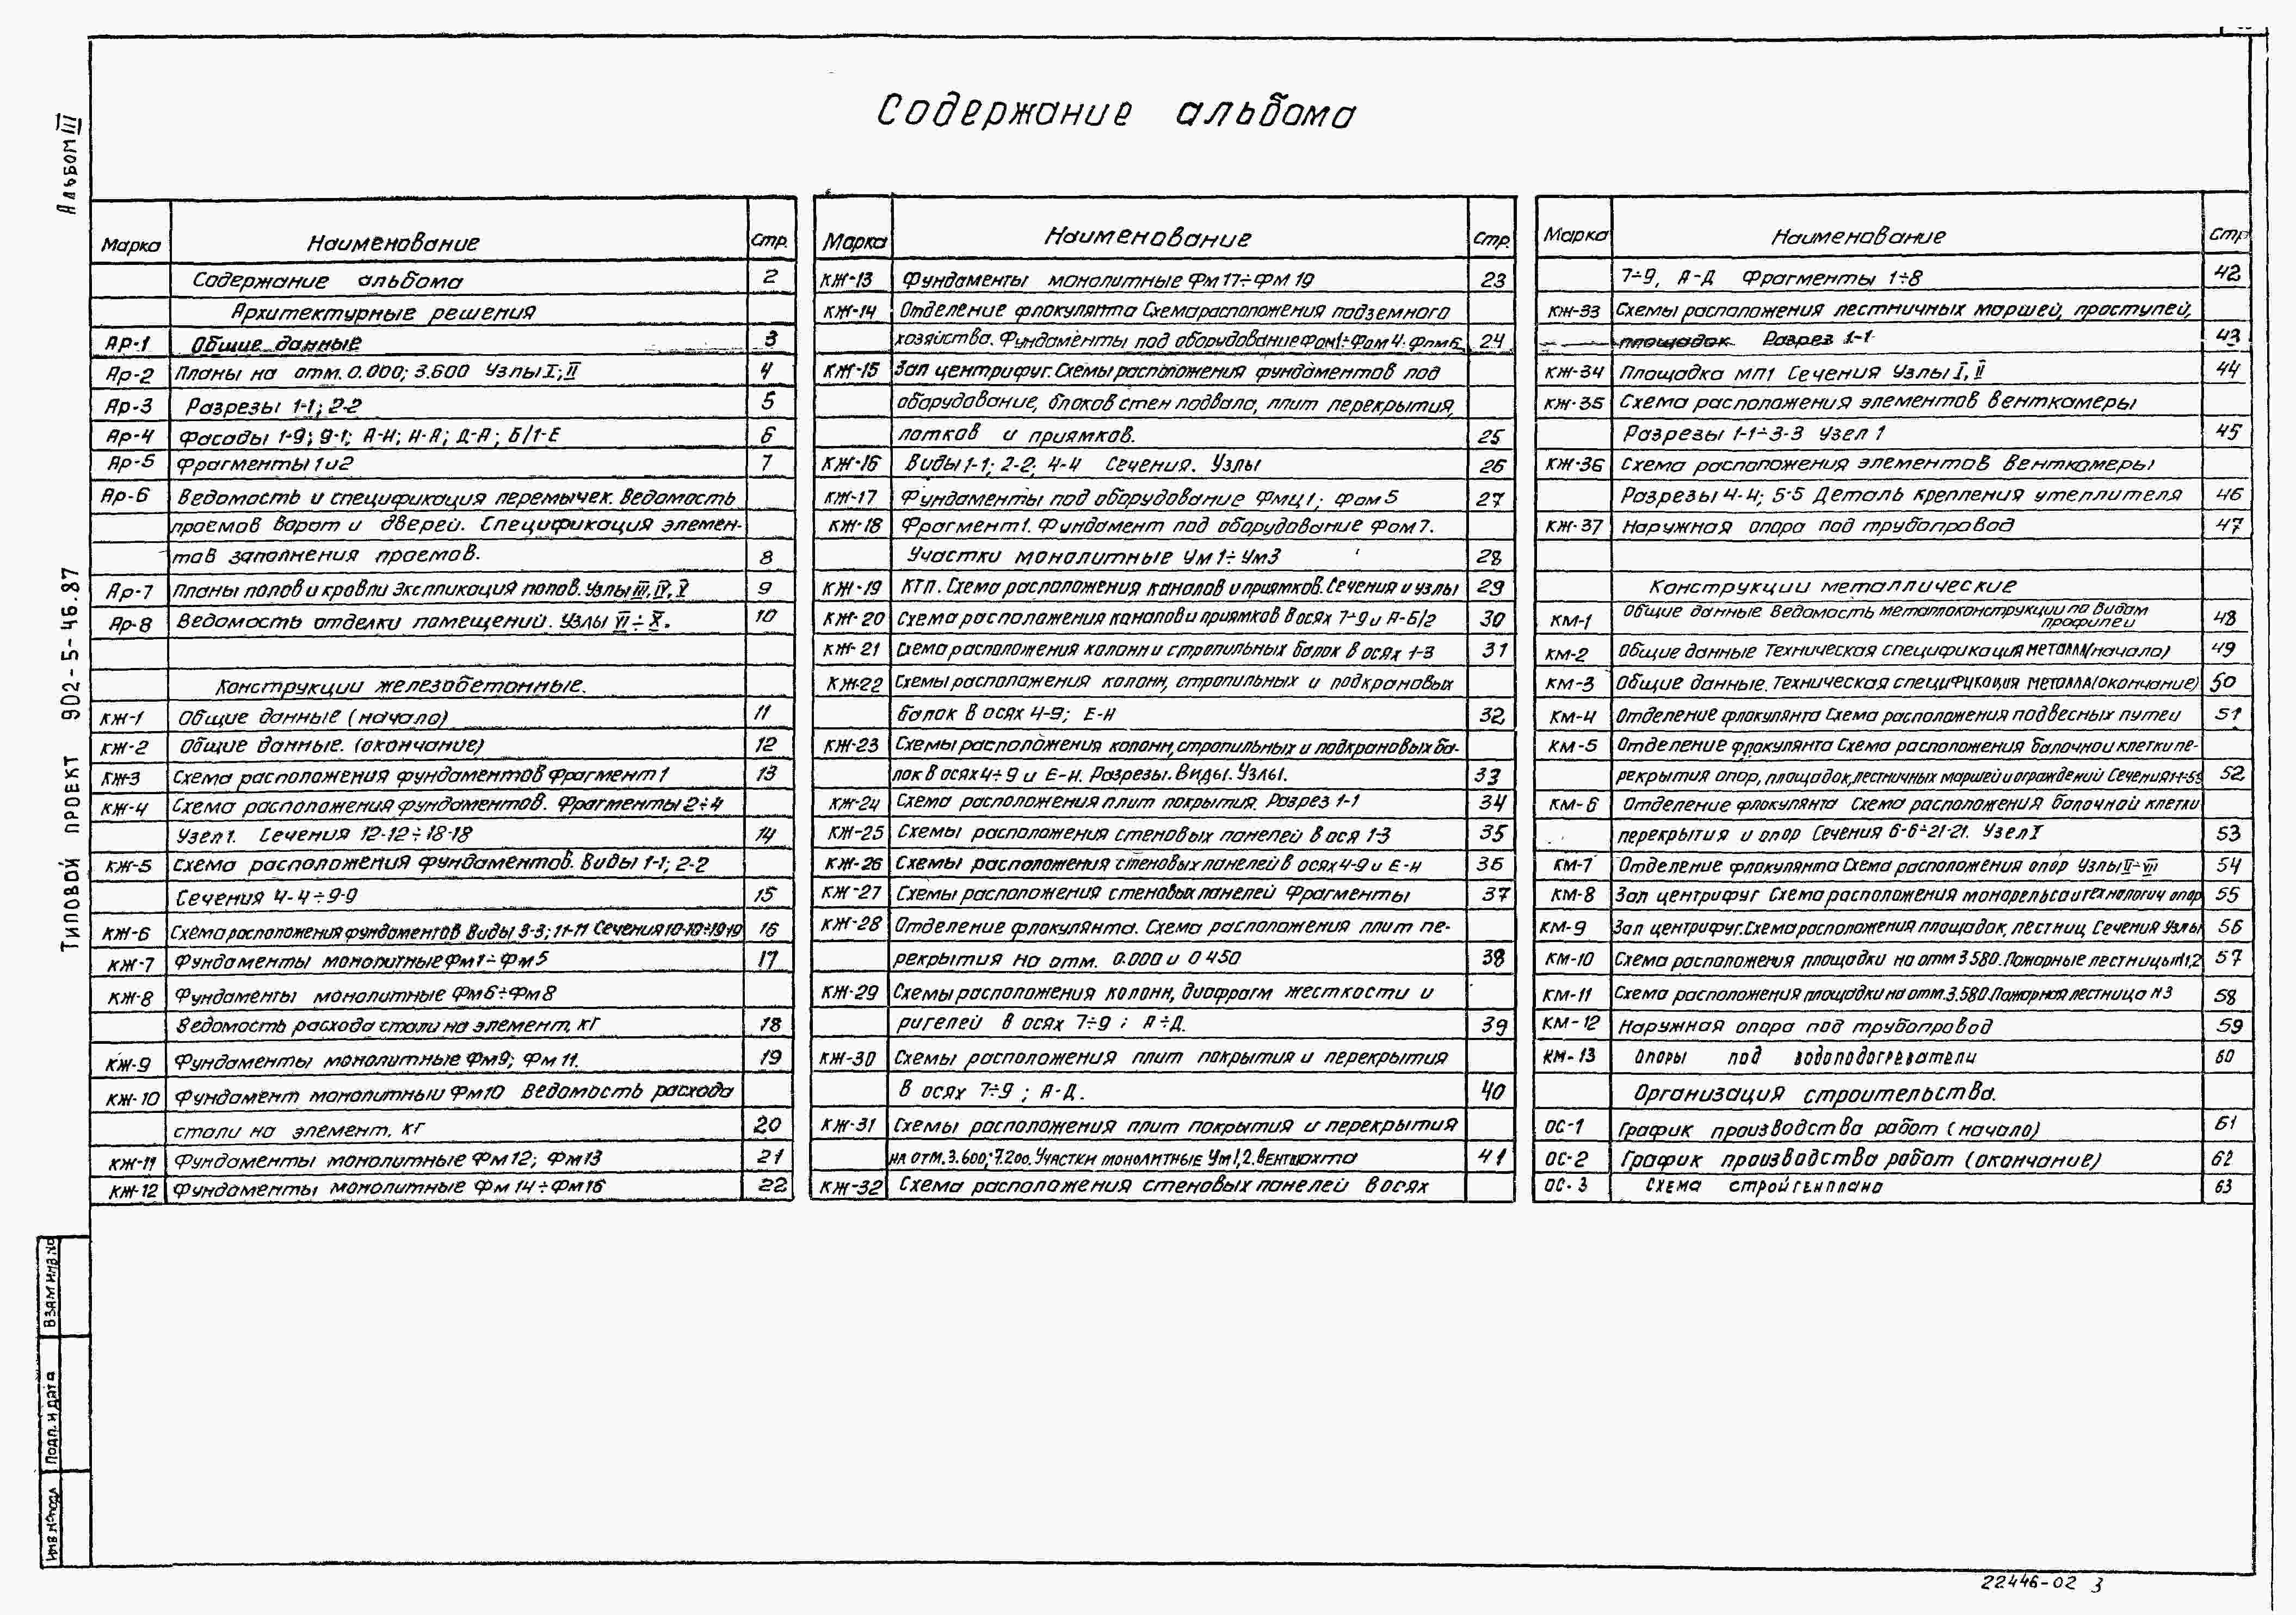 Альбом III
Содержание альбома
Марка Наименование Стр.
Содержание альбома 2
Архитектурные решения
Ар-1 Общие данные 3
Ар-2 Планы на отм. 0.000; 3.600 Узлы I; II 4
Ар-3 Разрезы 1-1; 2-2 5
Ар-4 Фасады 1-9; 9-1; А-И; И-А; Д-А; Б/1-Е 6
Ар-5 Фрагменты 1 и 2 7
Ар-6 Ведомость и спецификация перемычек. Ведомость
проемов ворот и дверей. Спецификация элемен-
тов заполнения проемов. 8
Ар-7 Планы полов и кровли Экспликация полов. Узлы III, IV, V 9
Ар-8 Ведомость отделки помещений. Узлы VI÷X. 10
Конструкции железобетонные.
КЖ-1 Общие данные (начало) 11
КЖ-2 Общие данные. (окончание) 12
КЖ-3 Схема расположения фундаментов Фрагмент 1 13
КЖ-4 Схема расположения фундаментов. Фрагменты 2÷4
Узел 1. Сечения 12-12÷18-18 14
КЖ-5 Схема расположения фундаментов. Виды 1-1; 2-2
Сечения 4-4÷9-9 15
КЖ-6 Схема расположения фундаментов Виды 3-3; 11-11 Сечения 10-10÷19-19 16
КЖ-7 Фундаменты монолитные Фм1÷Фм5 17
КЖ-8 Фундаменты монолитные Фм6÷Фм8
Ведомость расхода стали на элемент, кг 18
КЖ-9 Фундаменты монолитные Фм9; Фм 11. 19
КЖ-10 Фундамент монолитный Фм10 Ведомость расхода
стали на элемент. кг 20
КЖ-11 Фундаменты монолитные Фм12; Фм13 21
КЖ-12 Фундаменты монолитные Фм 14÷Фм16 22
Марка Наименование Стр.
КЖ-13 Фундаменты монолитные Фм 17÷Фм 19 23
КЖ-14 Отделение флокулянта Схема расположения подземного
хозяйства. Фундаменты под оборудование Фом1÷Фом4; Фпм6 24
КЖ-15 Зал центрифуг. Схемы расположения фундаментов под
оборудование, блоков стен подвала, плит перекрытия,
лотков и приямков. 25
КЖ-16 Виды 1-1; 2-2; 4-4 Сечения. Узлы 26
КЖ-17 Фундаменты под оборудование Фмц1; Фом5 27
КЖ-18 Фрагмент 1. Фундамент под оборудование Фом7.
Участки монолитные Ум1÷Ум3 28
КЖ-19 КТП. Схема расположения каналов и приямков. Сечения и узлы 29
КЖ-20 Схема расположения каналов и приямков в осях 7÷9 и А-Б/2 30
КЖ-21 Схема расположения колонн и стропильных балок в осях 1-3 31
КЖ-22 Схемы расположения колонн, стропильных и подкрановых
балок в осях 4-9; Е-И 32
КЖ-23 Схемы расположения колонн, стропильных и подкрановых ба-
лок в осях 4÷9 и Е-И. Разрезы. Виды. Узлы. 33
КЖ-24 Схема расположения плит покрытия. Разрез 1-1 34
КЖ-25 Схемы расположения стеновых панелей в ося 1-3 35
КЖ-26 Схемы расположения стеновых панелей в осях 4-9 и Е-И 36
КЖ-27 Схемы расположения стеновых панелей Фрагменты 37
КЖ-28 Отделение флокулянта. Схема расположения плит пе-
рекрытия на отм. 0.000 и 0 450 38
КЖ-29 Схемы расположения колонн, диафрагм жесткости и
ригелей в осях 7÷9; А÷Д. 39
КЖ-30 Схемы расположения плит покрытия и перекрытия
в осях 7÷9; А-Д. 40
КЖ-31 Схемы расположения плит покрытия и перекрытия
на отм. 3.600; 7.200. Участки монолитные Ум1,2. Вентшахта 41
КЖ-32 Схема расположения стеновых панелей в осях
Марка Наименование Стр
7÷9, А-Д Фрагменты 1÷8 42
КЖ-33 Схемы расположения лестничных маршей, проступей,
площадок Разрез 1-1 43
КЖ-34 Площадка МП1 Сечения Узлы I, II 44
КЖ-35 Схема расположения элементов венткамеры
Разрезы 1-1÷3-3 Узел 1 45
КЖ-36 Схема расположения элементов венткамеры
Разрезы 4-4; 5-5 Деталь крепления утеплителя 46
КЖ-37 Наружная опора под трубопровод 47
Конструкции металлические
КМ-1 Общие данные Ведомость металлоконструкции по видам
профилей 48
КМ-2 Общие данные Техническая спецификация металла (начало) 49
КМ-3 Общие данные. Техническая спецификация металла (окончание) 50
КМ-4 Отделение флокулянта Схема расположения подвесных путей 51
КМ-5 Отделение флокулянта Схема расположения балочной клетки пе-
рекрытия опор, площадок, лестничных маршей и ограждений Сечения 1-1÷5-5 52
КМ-6 Отделение флокулянта Схема расположения балочной клетки
перекрытия и опор Сечения 6-6÷21-21. Узел I 53
КМ-7 Отделение флокулянта Схема расположения опор Узлы II÷VII 54
КМ-8 Зал центрифуг Схема расположения монорельса и технологич опор 55
КМ-9 Зал центрифуг. Схема расположения площадок, лестниц Сечения Узлы 56
КМ-10 Схема расположения площадки на отм 3 580. Пожарные лестницы №1,2 57
КМ-11 Схема расположения площадки на отм. 3.580 Пожарная лестница №3 58
КМ-12 Наружная опора под трубопровод 59
КМ-13 Опоры под водоподогреватели 60
Организация строительства.
ОС-1 График производства работ (начало) 61
ОС-2 График производства работ (окончание) 62
ОС-3 Схема стройгенплана 63
Типовой проект 902-5-46.87
Взам инв №
Подп. и дата
Инв № подл
22446-02 3